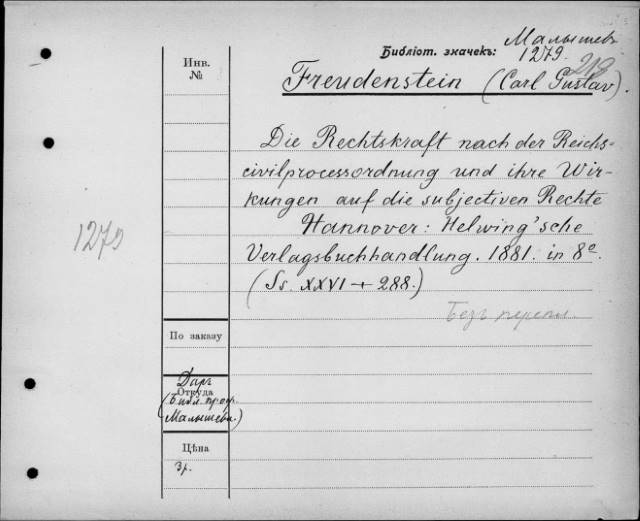 Малышев
Библіот. значекъ: 1279.
213
Инв.
№
Freudenstein (Carl Gustav).
Die Rechtskraft nach der Reichs-
civilprocessordnung und ihre Wir-
kungen auf die subjectiven Rechte
Hannover: Helwing'sche
Verlagsbuchhandlung. 1881. in 8°.
(Ss. XXVI + 288.)
1279
Безъ перепл.
По заказу
Даръ
Откуда
(Библ. проф.
Малышева.)
Цѣна
3 р.